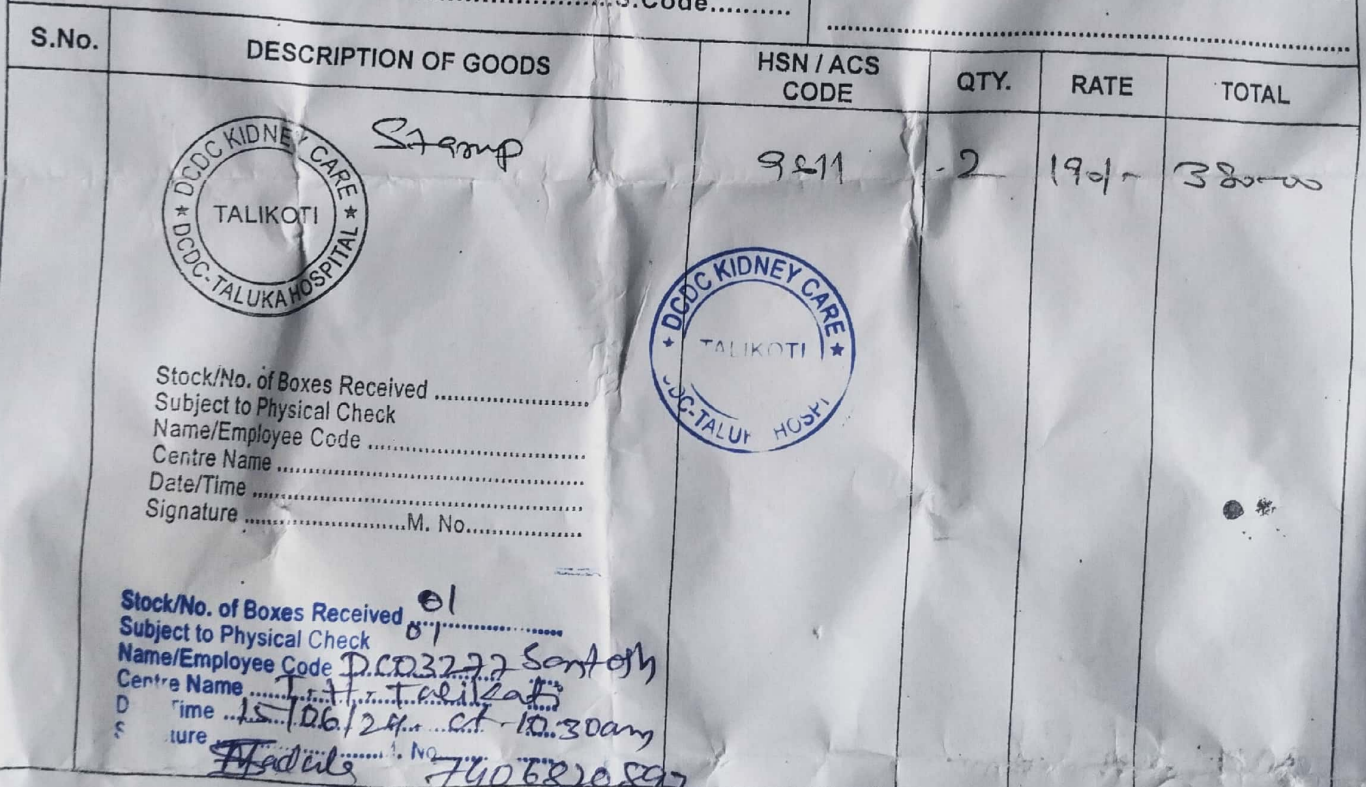 S.Code..........
S.No. DESCRIPTION OF GOODS HSN / ACS CODE QTY. RATE TOTAL
Stamp 9611 2 190/- 380-00
★ DCDC KIDNEY CARE ★
TALIKOTI
DCDC-TALUKA HOSPITAL
★ DCDC KIDNEY CARE ★
TALIKOTI
DC-TALUK HOSPI
Stock/No. of Boxes Received ..........................
Subject to Physical Check
Name/Employee Code ....................................
Centre Name ....................................................
Date/Time ........................................................
Signature ...........................M. No...................
Stock/No. of Boxes Received 01
01
Subject to Physical Check
Name/Employee Code DCD3277 Santosh
Centre Name T.H. Talikoti
D Time 15/06/24 at 10.30am
S ture
No 7406820897